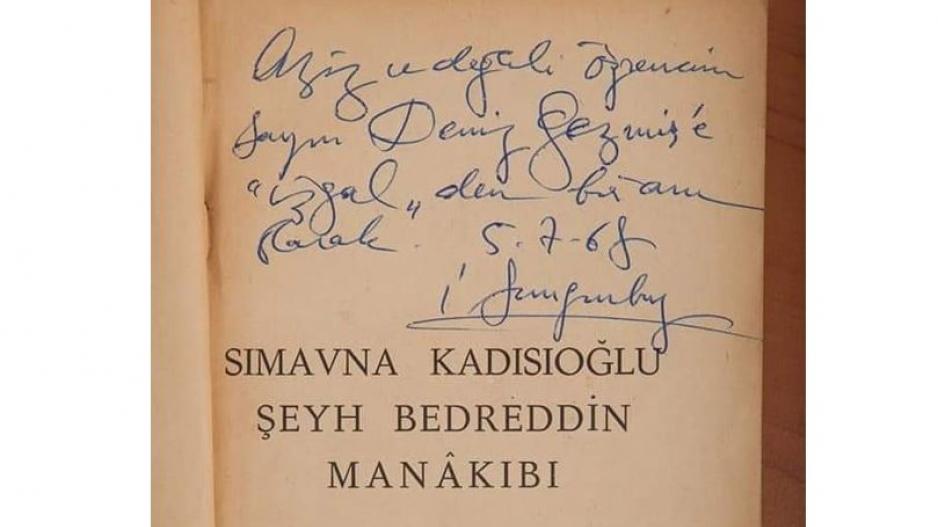 Aziz ve değerli öğrencim
Sayın Deniz Gezmiş'e
"işgal„den bir anı
olarak. 5.7.68
İ Sungurbey
SIMAVNA KADISIOĞLU
ŞEYH BEDREDDİN
MANÂKIBI